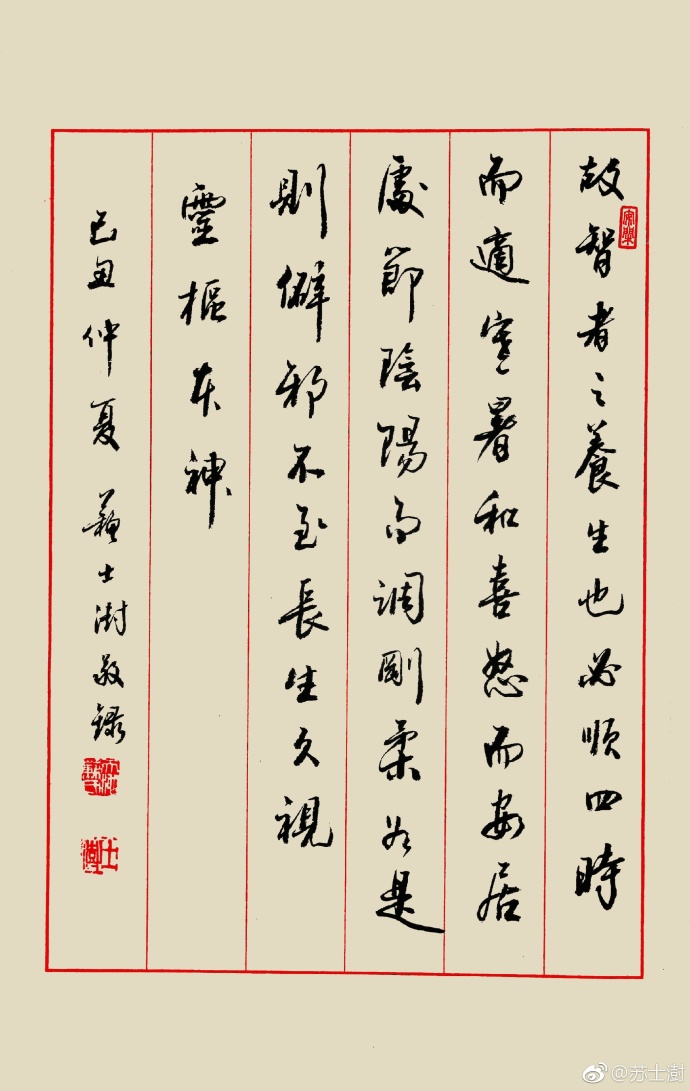 故智者之養生也必順四時
而適寒暑和喜怒而安居
處節陰陽而調剛柔如是
則僻邪不至長生久視
靈樞本神
己丑仲夏 蘇士澍敬錄
@苏士澍